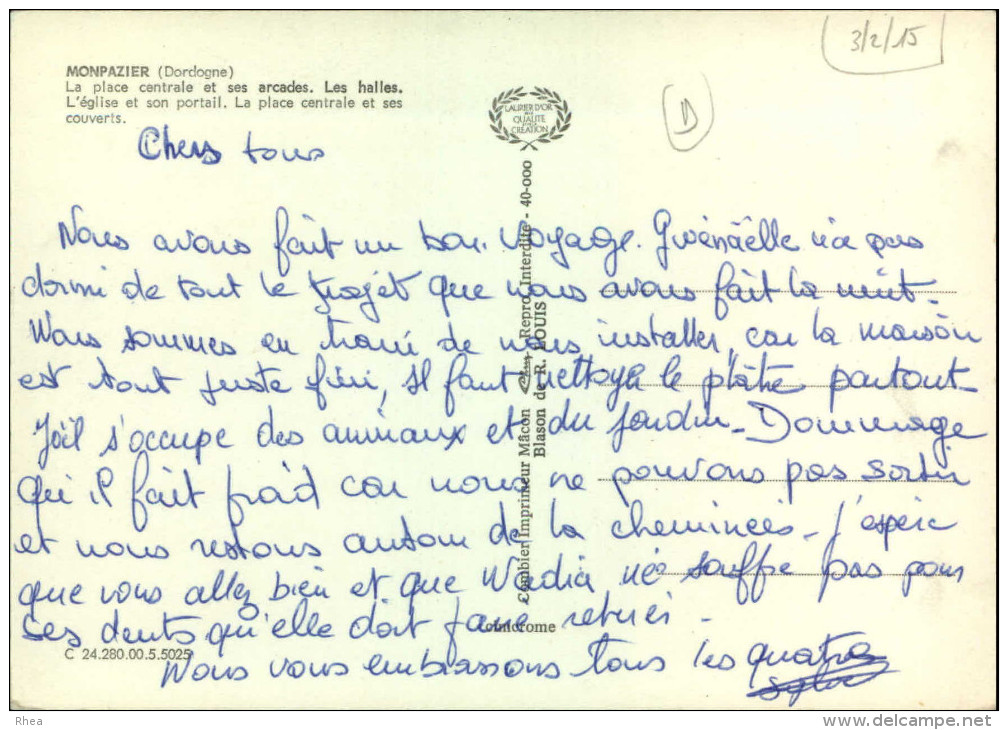 3/2/15
D
MONPAZIER (Dordogne)
La place centrale et ses arcades. Les halles.
L'église et son portail. La place centrale et ses
couverts.
LAURIER D'OR
DE LA
QUALITE
CREATION
Chers tous
Nous avons fait un bon voyage. Gwénaëlle n'a pas
dormi de tout le trajet que nous avons fait la nuit.
Nous sommes en train de nous installer, car la maison
est tout juste fini, il faut nettoyer le plâtre partout.
Joël s'occupe des animaux et du jardin. Dommage
qu'il fait froid car nous ne pouvons pas sortir
et nous restons autour de la cheminées. J'espère
que vous allez bien et que Nadia ne souffre pas pour
ses dents qu'elle doit faire retirés.
Nous vous embrassons tous les quatres
Sylvie
Combier Imprimeur Mâcon Repro. Interdite - 40-000
Blason de R. LOUIS
Colorchrome
C 24.280.00.5.5025
Rhea
www.delcampe.net